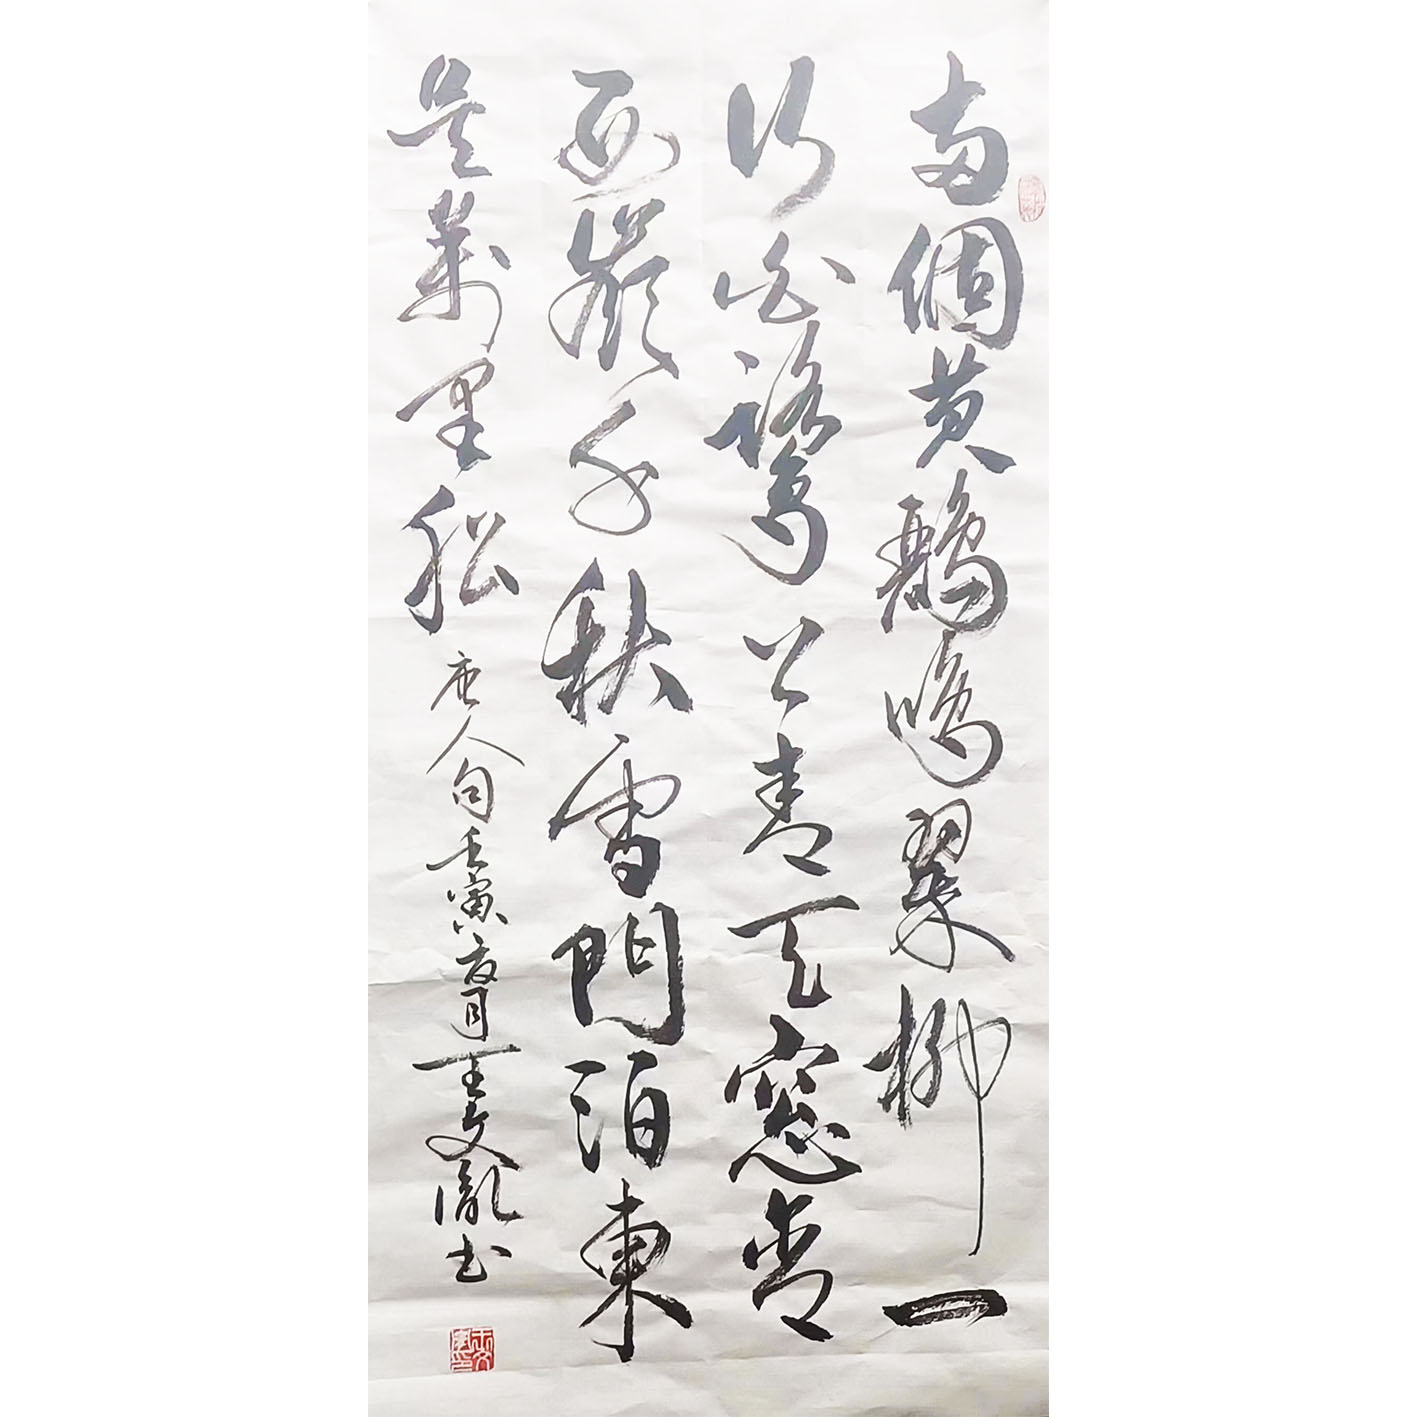 两個黃鸝鳴翠柳一
行白鷺上青天窗含
西嶺千秋雪門泊東
吳萬里船 唐人句壬寅夏月王文胤书